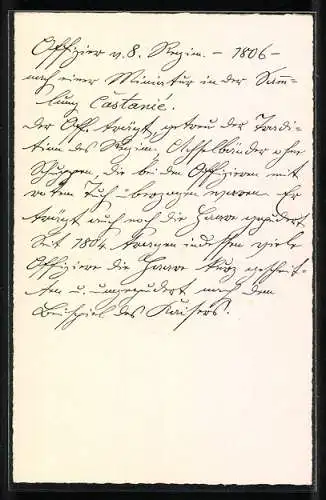 Offizier v. 8. Regim. – 1806 –
nach einer Miniatur in der Samm=
lung Castanié.
Der Off. trägt, getreu der Tradi=
tion des Regim. Achselbänder ohne
Schuppen, die bei den Offizieren mit
rotem Tuch überzogen waren. Er
trägt auch noch die Haare gepudert
Seit 1804 tragen indessen viele
Offiziere die Haare kurz geschnit=
ten u. ungepudert nach dem
Beispiel des Kaisers.